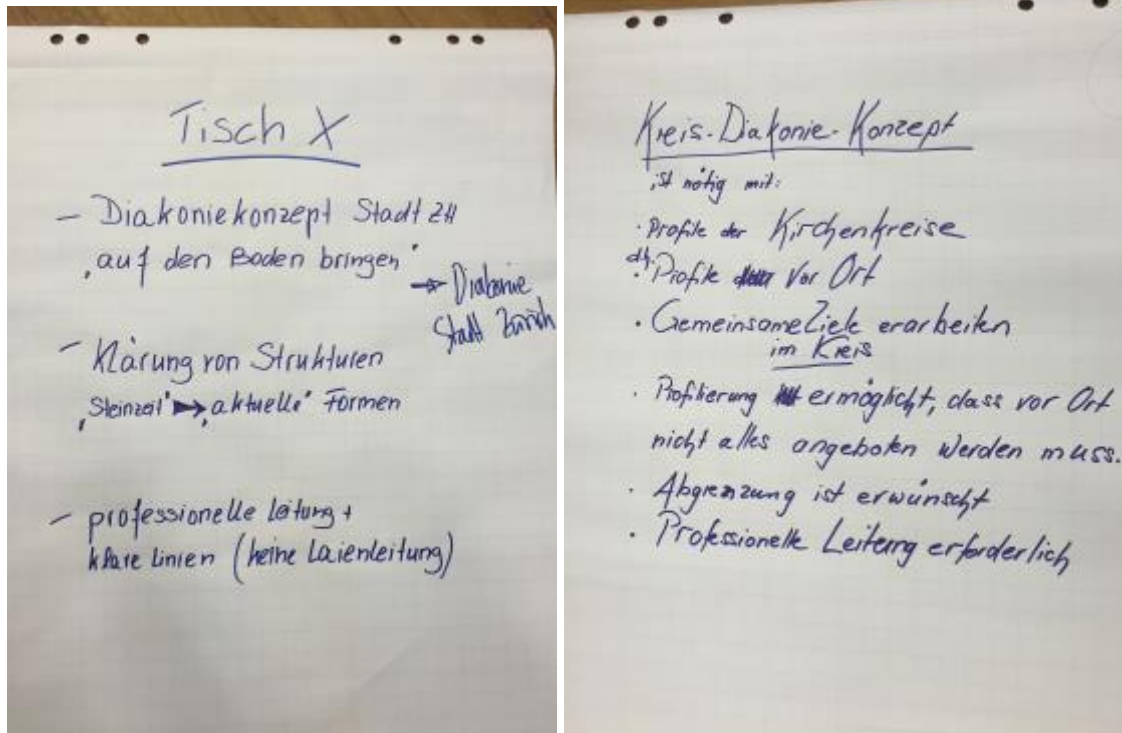 Tisch X
- Diakoniekonzept Stadt ZH
"auf den Boden bringen"
→ Diakonie
Stadt Zürich
- Klärung von Strukturen
"Steinzeit" → "aktuelle" Formen
- professionelle Leitung +
klare Linien (keine Laienleitung)
Kreis-Diakonie-Konzept
ist nötig mit:
· Profile der Kirchenkreise
dh.
· Profile vor Ort
· Gemeinsame Ziele erarbeiten
im Kreis
· Profilierung ermöglicht, dass vor Ort
nicht alles angeboten werden muss.
· Abgrenzung ist erwünscht
· Professionelle Leitung erforderlich